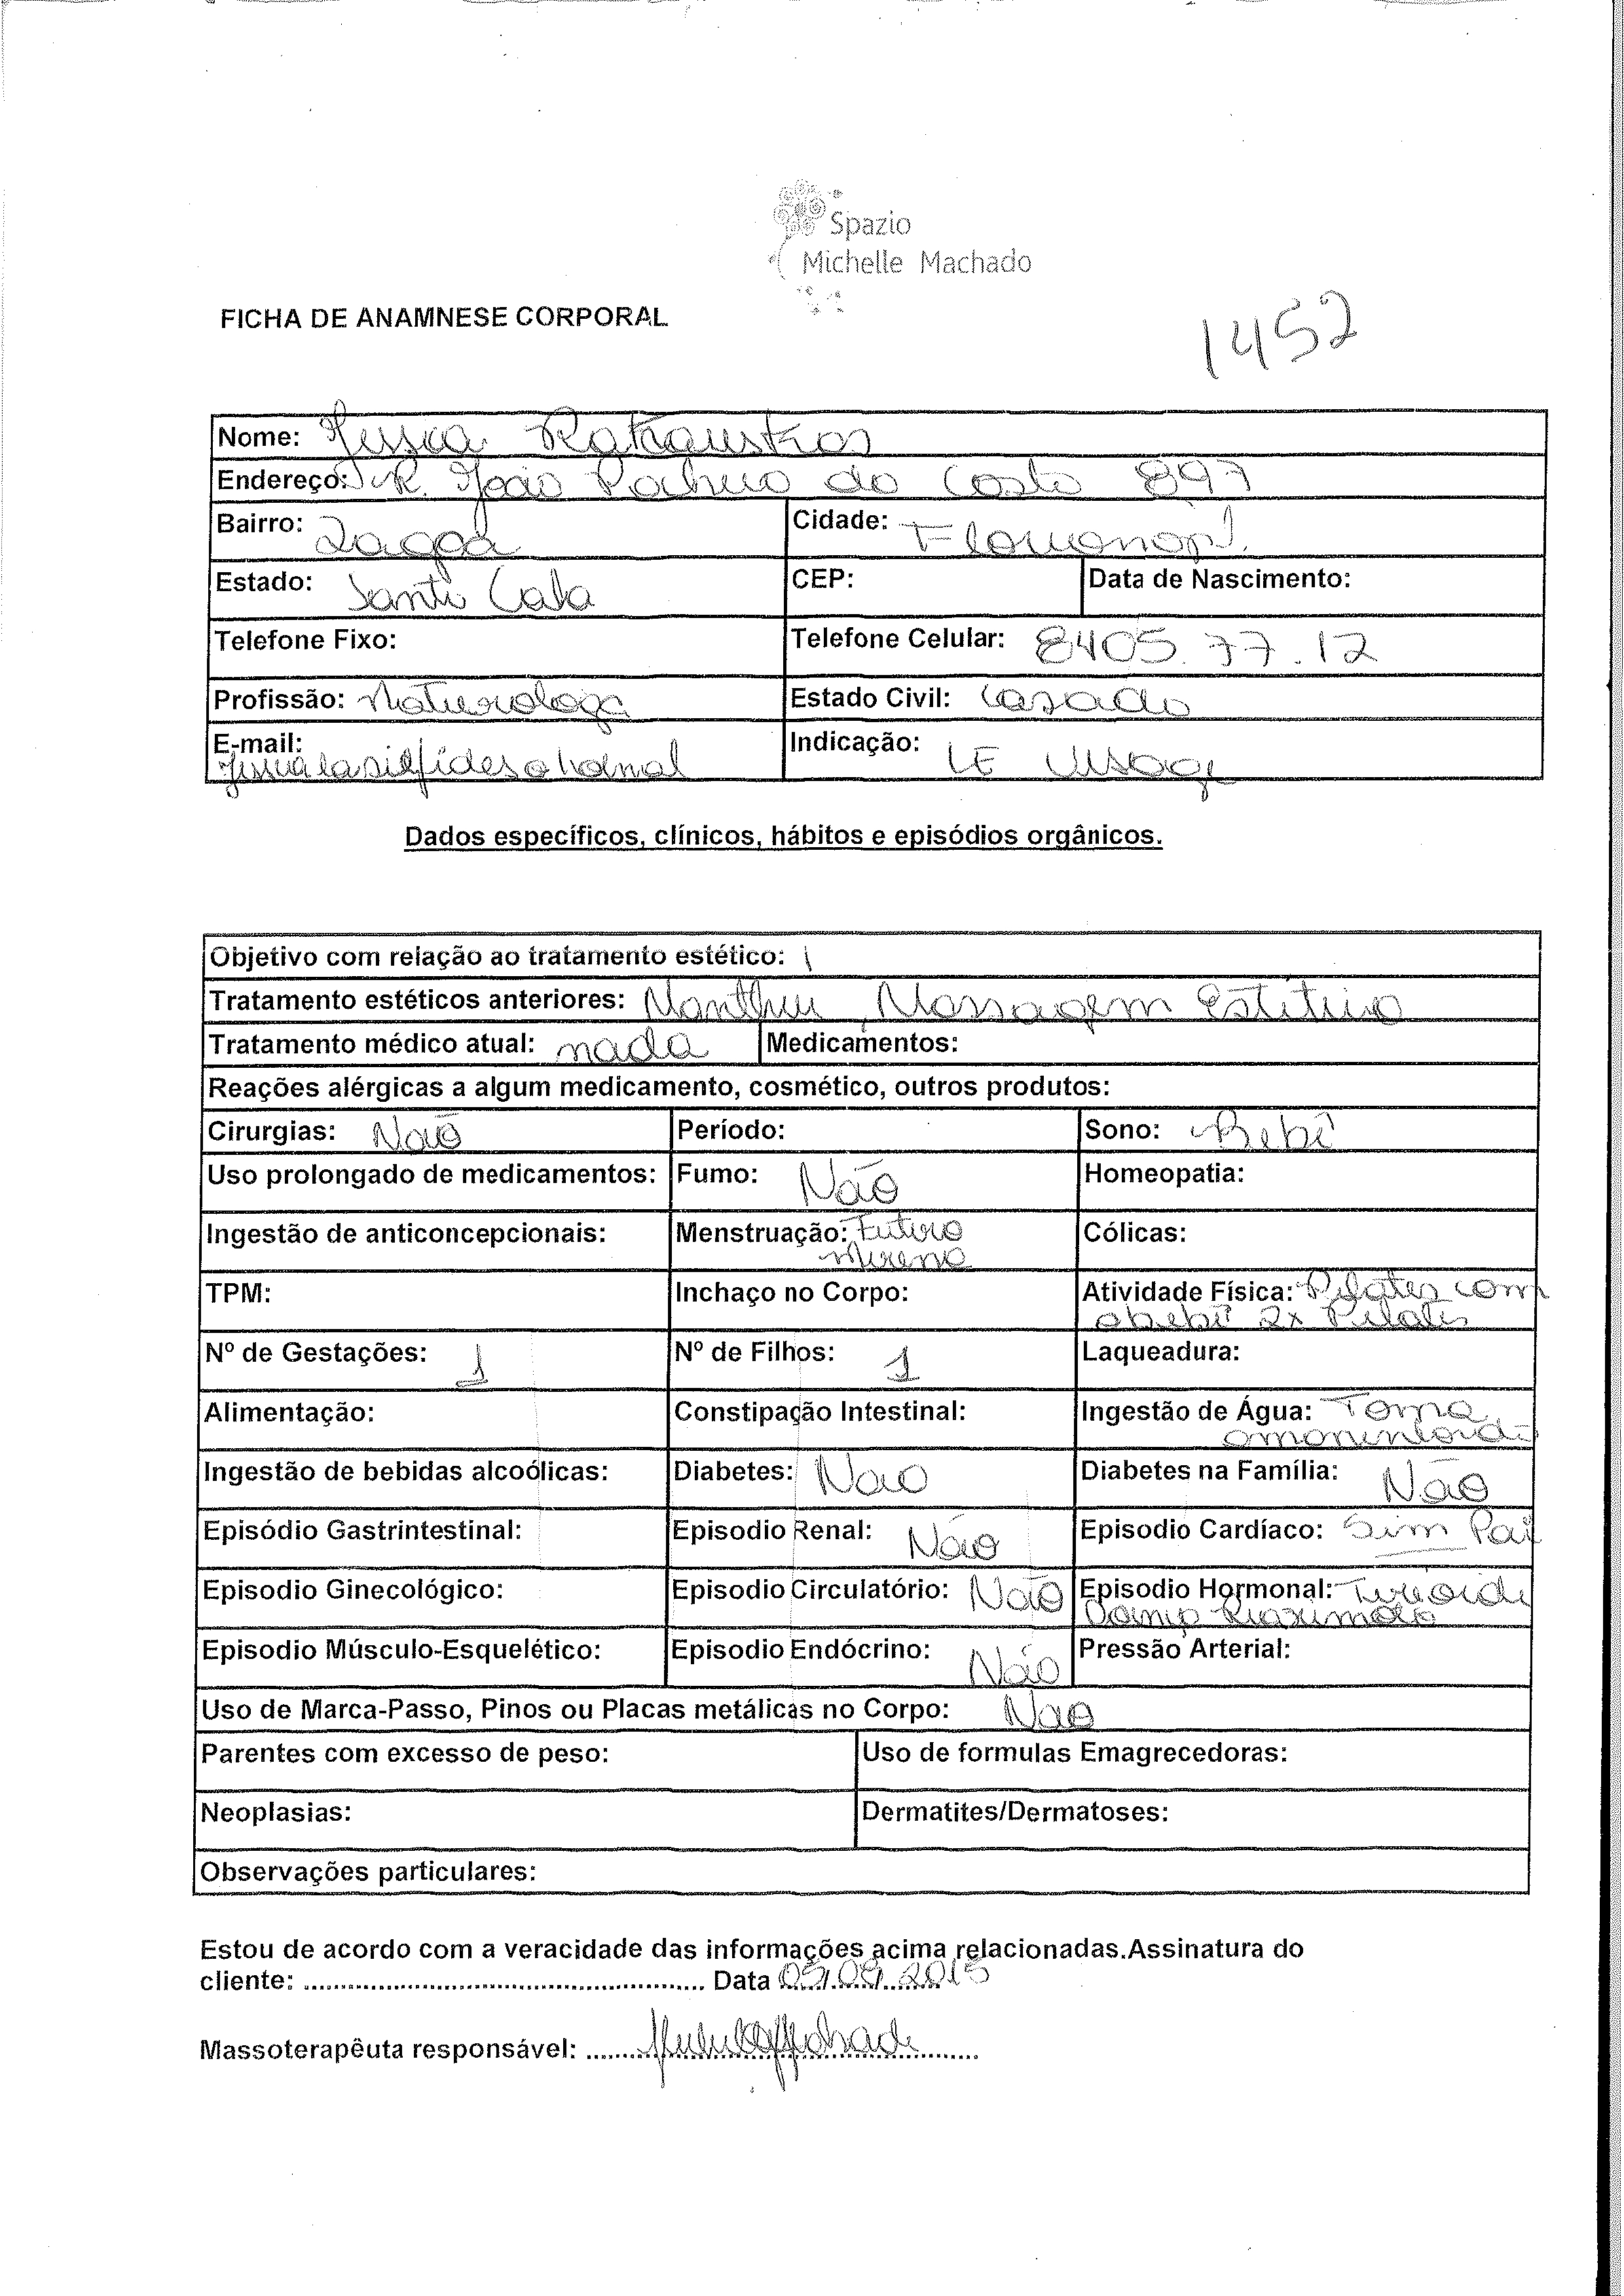 Spazio
Michelle Machado
FICHA DE ANAMNESE CORPORAL
1452
Nome: Jessica
Endereço: R. João Pacheco da Costa 897
Bairro: Lagoa Cidade: Florianop.
Estado: Santa Cata CEP: Data de Nascimento:
Telefone Fixo: Telefone Celular: 8405.77.12
Profissão: Naturologa Estado Civil: Casada
E-mail: Indicação: LE Visage
Dados específicos, clínicos, hábitos e episódios orgânicos.
Objetivo com relação ao tratamento estético:
Tratamento estéticos anteriores: Manthus, Massagem Estética
Tratamento médico atual: nada Medicamentos:
Reações alérgicas a algum medicamento, cosmético, outros produtos:
Cirurgias: Não Período: Sono: Bebê
Uso prolongado de medicamentos: Fumo: Não Homeopatia:
Ingestão de anticoncepcionais: Menstruação: Cólicas:
TPM: Inchaço no Corpo: Atividade Física: Pilates com
o bebê 2x Pilates
Nº de Gestações: 1 Nº de Filhos: 1 Laqueadura:
Alimentação: Constipação Intestinal: Ingestão de Água: Toma
Ingestão de bebidas alcoólicas: Diabetes: Não Diabetes na Família: Não
Episódio Gastrintestinal: Episodio Renal: Não Episodio Cardíaco: Sim Pai
Episodio Ginecológico: Episodio Circulatório: Não Episodio Hormonal:
Episodio Músculo-Esquelético: Episodio Endócrino: Não Pressão Arterial:
Uso de Marca-Passo, Pinos ou Placas metálicas no Corpo: Não
Parentes com excesso de peso: Uso de formulas Emagrecedoras:
Neoplasias: Dermatites/Dermatoses:
Observações particulares:
Estou de acordo com a veracidade das informações acima relacionadas.Assinatura do
cliente: ........ Data 05/09/2015
Massoterapêuta responsável: ........